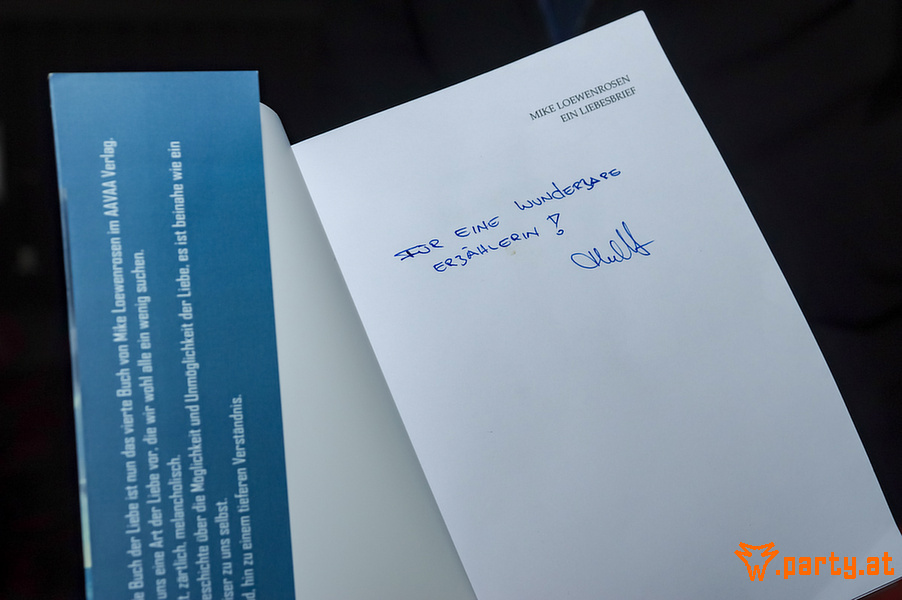 MIKE LOEWENROSEN
EIN LIEBESBRIEF
FÜR EINE WUNDERBARE
ERZÄHLERIN!
e Buch der Liebe ist nun das vierte Buch von Mike Loewenrosen im AAVAA Verlag,
uns eine Art der Liebe vor, die wir wohl alle ein wenig suchen.
t, zärtlich, melancholisch.
eschichte über die Möglichkeit und Unmöglichkeit der Liebe, es ist beinahe wie ein
iser zu uns selbst.
d, hin zu einem tieferen Verständnis.
party.at